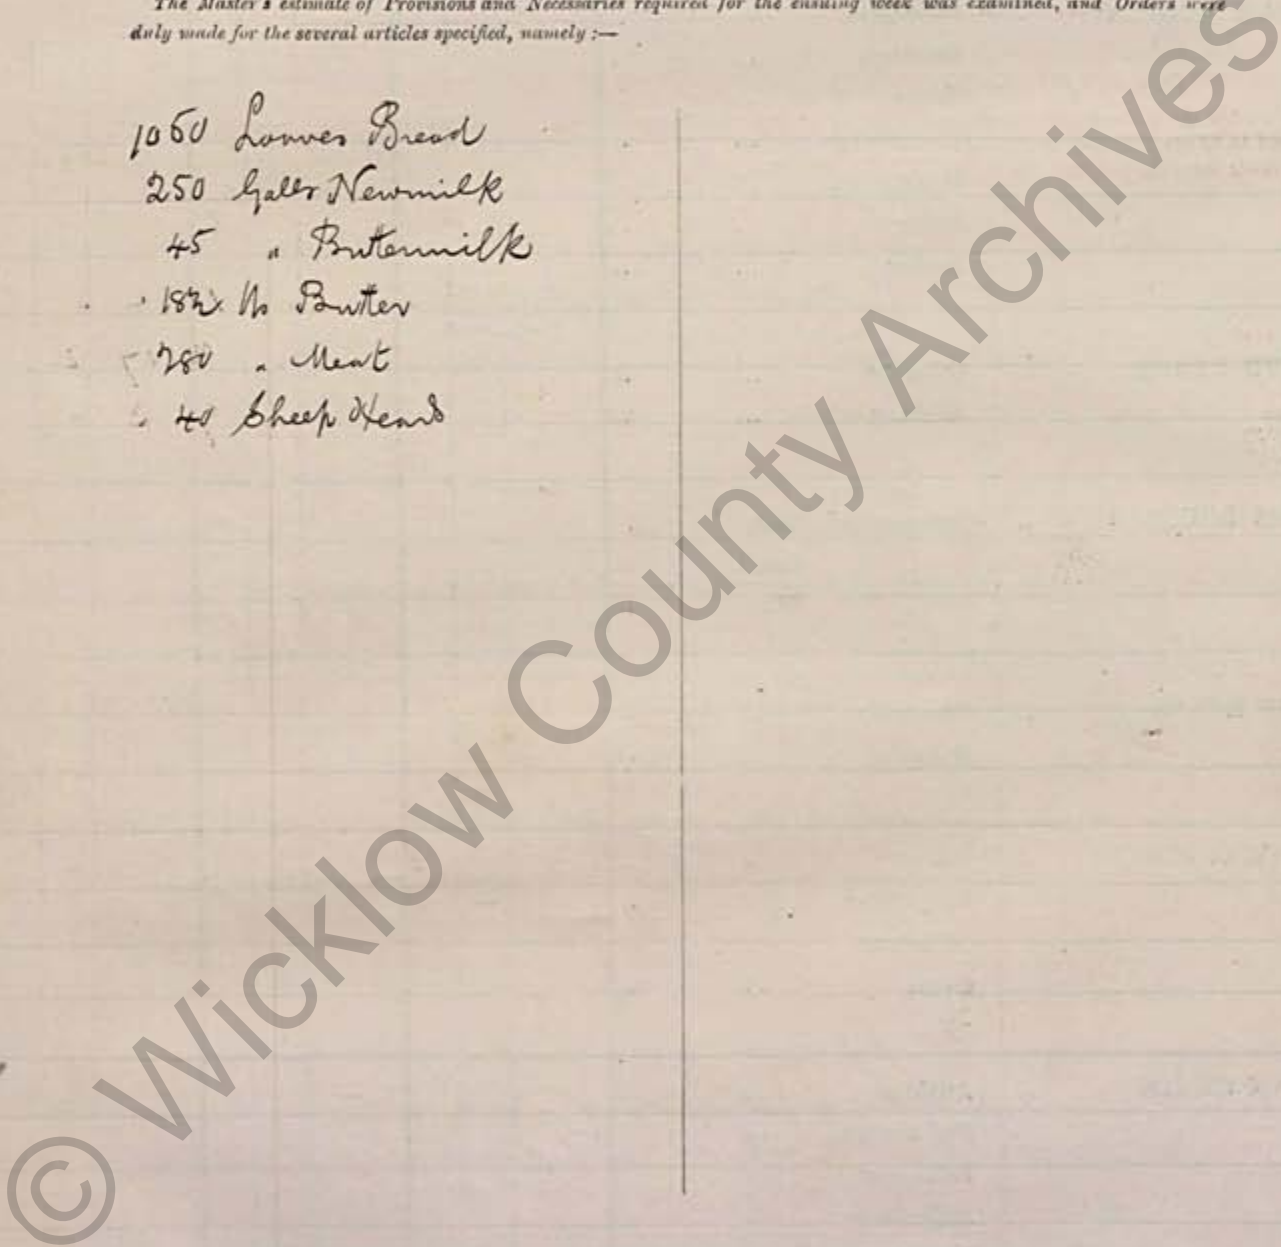 The Master's estimate of Provisions and Necessaries required for the ensuing week was examined, and Orders were
duly made for the several articles specified, namely :—
1060 Loaves Bread
250 Galls Newmilk
45 " Buttermilk
182 lbs Butter
280 " Meat
40 Sheep Heads
© Wicklow County Archives